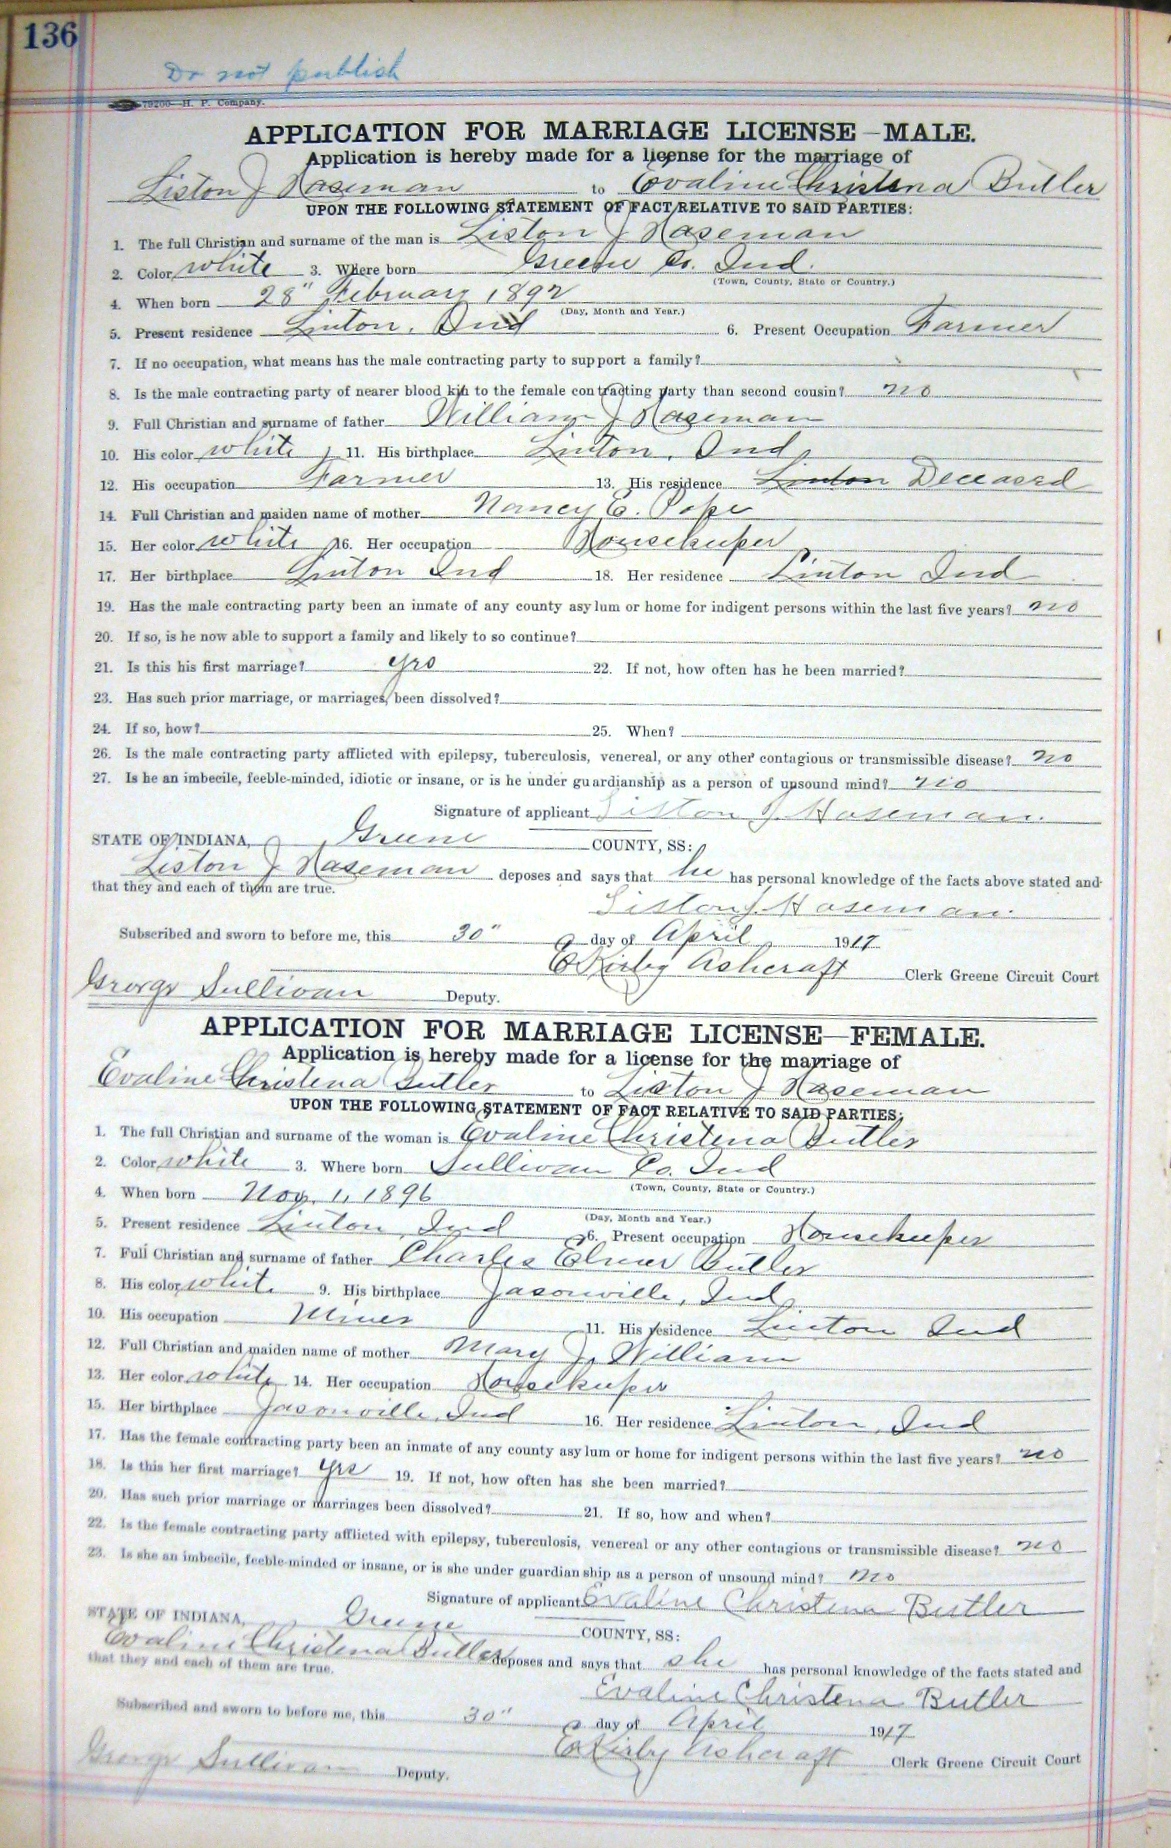 136
Do not publish
79200—H. P. Company.
APPLICATION FOR MARRIAGE LICENSE—MALE.
Application is hereby made for a license for the marriage of
Liston J Haseman to Evaline Christena Butler
UPON THE FOLLOWING STATEMENT OF FACT RELATIVE TO SAID PARTIES:
1. The full Christian and surname of the man is Liston J Haseman
2. Color white 3. Where born Greene Co. Ind.
(Town, County, State or Country.)
4. When born 28" February 1892
(Day, Month and Year.)
5. Present residence Linton, Ind 6. Present Occupation Farmer
7. If no occupation, what means has the male contracting party to support a family?
8. Is the male contracting party of nearer blood kin to the female contracting party than second cousin? no
9. Full Christian and surname of father William J Haseman
10. His color white 11. His birthplace Linton, Ind
12. His occupation Farmer 13. His residence Linton Deceased
14. Full Christian and maiden name of mother Nancy E. Pope
15. Her color white 16. Her occupation Housekeeper
17. Her birthplace Linton Ind 18. Her residence Linton Ind
19. Has the male contracting party been an inmate of any county asylum or home for indigent persons within the last five years? no
20. If so, is he now able to support a family and likely to so continue?
21. Is this his first marriage? yes 22. If not, how often has he been married?
23. Has such prior marriage, or marriages, been dissolved?
24. If so, how? 25. When?
26. Is the male contracting party afflicted with epilepsy, tuberculosis, venereal, or any other contagious or transmissible disease? no
27. Is he an imbecile, feeble-minded, idiotic or insane, or is he under guardianship as a person of unsound mind? no
Signature of applicant Liston J. Haseman.
STATE OF INDIANA, Greene COUNTY, SS:
Liston J Haseman deposes and says that he has personal knowledge of the facts above stated and
that they and each of them are true.
Liston J. Haseman.
Subscribed and sworn to before me, this 30" day of April 1917
E Kirby Ashcraft Clerk Greene Circuit Court
George Sullivan Deputy.
APPLICATION FOR MARRIAGE LICENSE—FEMALE.
Application is hereby made for a license for the marriage of
Evaline Christena Butler to Liston J Haseman
UPON THE FOLLOWING STATEMENT OF FACT RELATIVE TO SAID PARTIES:
1. The full Christian and surname of the woman is Evaline Christena Butler
2. Color white 3. Where born Sullivan Co. Ind
(Town, County, State or Country.)
4. When born Nov. 1, 1896
(Day, Month and Year.)
5. Present residence Linton, Ind 6. Present occupation Housekeeper
7. Full Christian and surname of father Charles Elmer Butler
8. His color white 9. His birthplace Jasonville, Ind
10. His occupation Miner 11. His residence Linton Ind
12. Full Christian and maiden name of mother Mary J. William
13. Her color white 14. Her occupation Housekeeper
15. Her birthplace Jasonville, Ind 16. Her residence Linton, Ind
17. Has the female contracting party been an inmate of any county asylum or home for indigent persons within the last five years? no
18. Is this her first marriage? yes 19. If not, how often has she been married?
20. Has such prior marriage or marriages been dissolved? 21. If so, how and when?
22. Is the female contracting party afflicted with epilepsy, tuberculosis, venereal or any other contagious or transmissible disease? no
23. Is she an imbecile, feeble-minded or insane, or is she under guardianship as a person of unsound mind? no
Signature of applicant Evaline Christena Butler
STATE OF INDIANA, Greene COUNTY, SS:
Evaline Christena Butler deposes and says that she has personal knowledge of the facts stated and
that they and each of them are true.
Evaline Christena Butler
Subscribed and sworn to before me, this 30" day of April 1917
E Kirby Ashcraft Clerk Greene Circuit Court
George Sullivan Deputy.